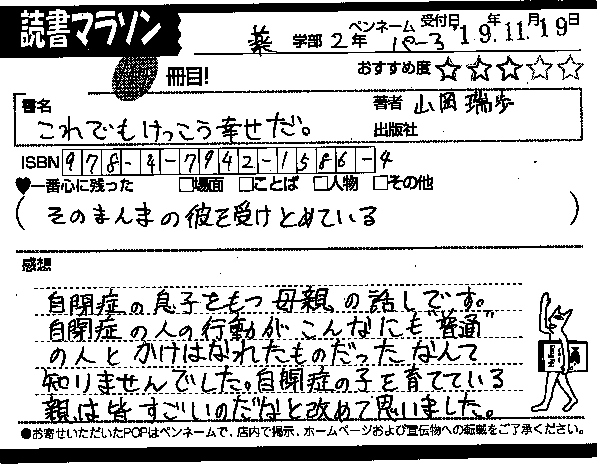 読書マラソン
薬 学部 2年 ペンネーム 受付日 '19年.11.月19日
冊目!
おすすめ度 ★★★☆☆
書名 著者 山岡瑞歩
これでもけっこう幸せだ。 出版社
ISBN 978-4-7942-1586-4
♥一番心に残った □場面 □ことば □人物 □その他
(そのまんまの彼を受けとめている)
感想
自閉症の息子をもつ母親の話しです。
自閉症の人の行動がこんなにも"普通"
の人とかけはなれたものだったなんて
知りませんでした。自閉症の子を育てている
親は皆すごいのだなと改めて思いました。
●お寄せいただいたPOPはペンネームで、店内で掲示、ホームページおよび宣伝物への転載をご了承ください。